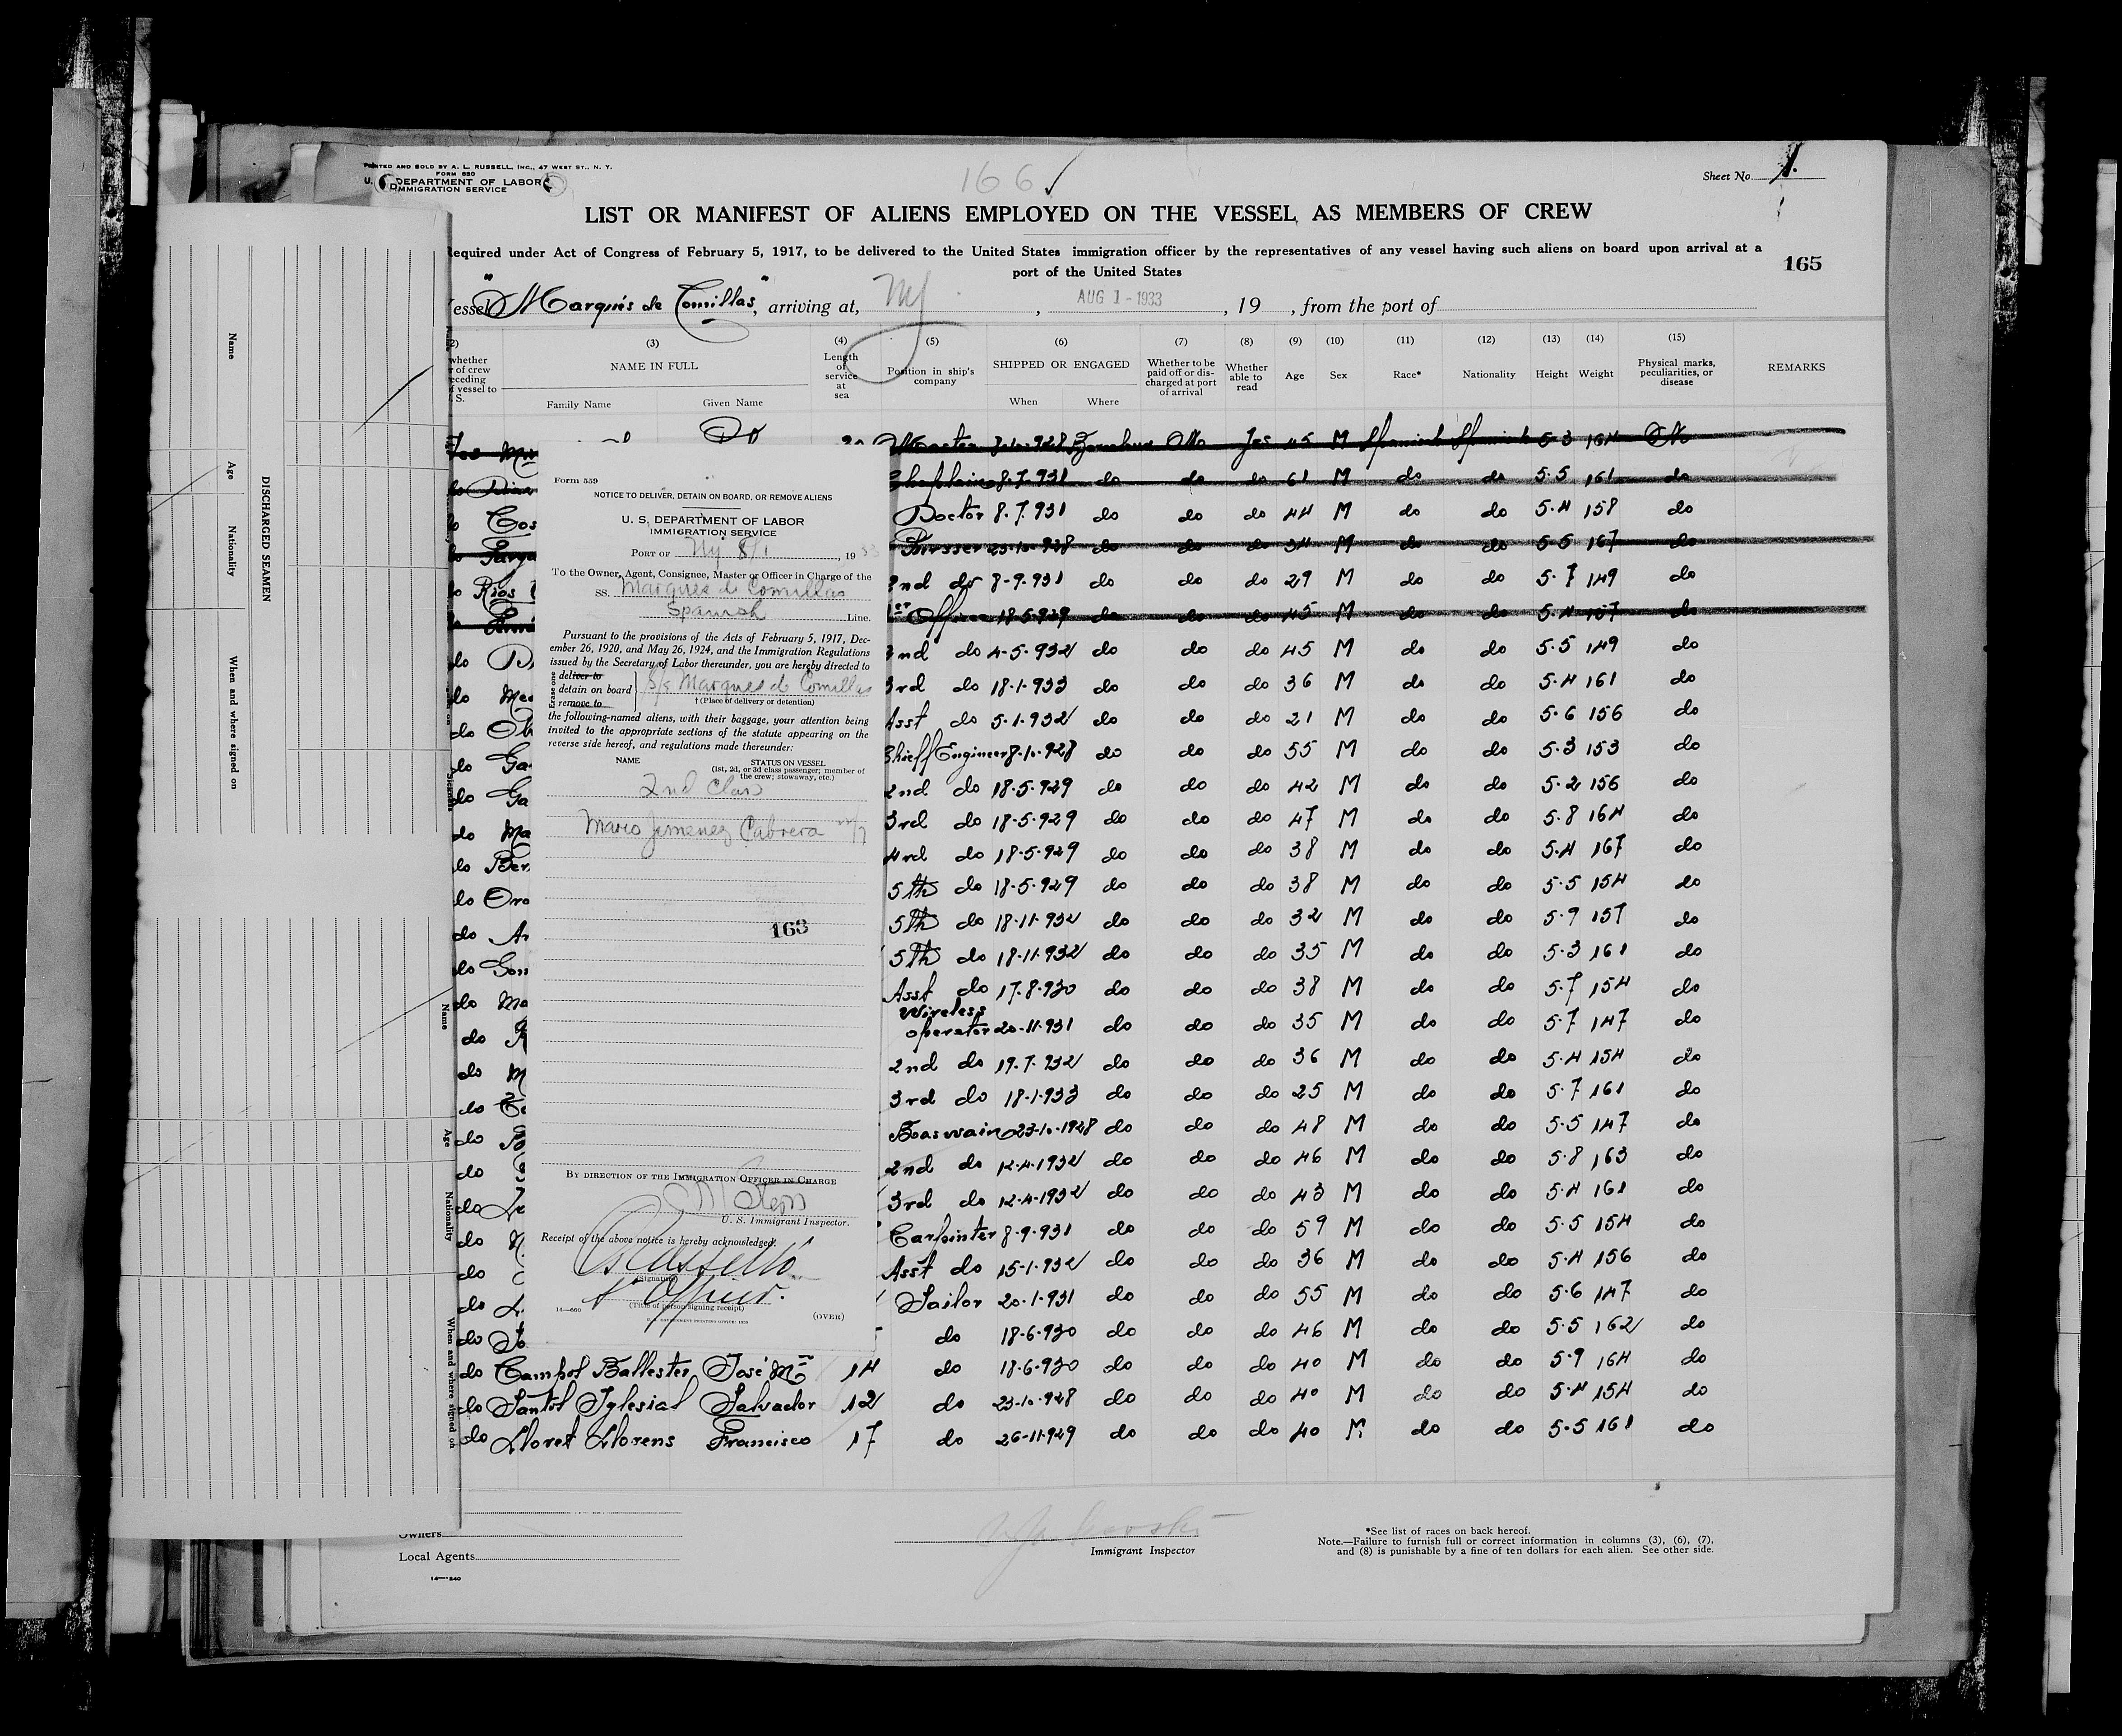 PRINTED AND SOLD BY A. L. RUSSELL, INC., 47 WEST ST., N. Y.
FORM 680
U. S. DEPARTMENT OF LABOR
IMMIGRATION SERVICE
166 ✓
Sheet No. 1.
LIST OR MANIFEST OF ALIENS EMPLOYED ON THE VESSEL AS MEMBERS OF CREW
Required under Act of Congress of February 5, 1917, to be delivered to the United States immigration officer by the representatives of any vessel having such aliens on board upon arrival at a
port of the United States
165
Vessel "Marqués de Comillas", arriving at, NY, AUG 1 - 1933, 19 , from the port of
(2) (3) (4) (5) (6) (7) (8) (9) (10) (11) (12) (13) (14) (15)
whether
of crew
vessel to
NAME IN FULL
Family Name Given Name
Length of service at sea
Position in ship's company
SHIPPED OR ENGAGED
When Where
Whether to be paid off or discharged at port of arrival
Whether able to read
Age Sex Race* Nationality Height Weight
Physical marks, peculiarities, or disease
REMARKS
Master 928 No Yes 45 M Spanish Spanish 5-3 164 No
Chaplain 8-7-931 do do do 61 M do do 5-5 161 do
Cos Doctor 8-7-931 do do do 44 M do do 5-4 158 do
Pursser 23-10-928 do do do 34 M do do 5-5 167 do
do Rios 2nd do 8-9-931 do do do 29 M do do 5-7 149 do
Officer 18-5-929 do do do 45 M do do 5-4 137 do
do 2nd do 4-5-932 do do do 45 M do do 5-5 149 do
do Me 3rd do 18-1-933 do do do 36 M do do 5-4 161 do
do Asst do 5-1-932 do do do 21 M do do 5-6 156 do
do Ga Chieff Engineer 8-10-928 do do do 55 M do do 5-3 153 do
do Ga 2nd do 18-5-929 do do do 42 M do do 5-2 156 do
do Ma 3rd do 18-5-929 do do do 47 M do do 5-8 164 do
do Ber 4rd do 18-5-929 do do do 38 M do do 5-4 167 do
do Oro 5th do 18-5-929 do do do 38 M do do 5-5 154 do
do 5th do 18-11-932 do do do 32 M do do 5-9 157 do
do Gon 5th do 18-11-932 do do do 35 M do do 5-3 161 do
do Ma Asst do 17-8-930 do do do 38 M do do 5-7 154 do
do Wireless operator 20-11-931 do do do 35 M do do 5-7 147 do
do M 2nd do 19-7-932 do do do 36 M do do 5-4 154 do
do 3rd do 18-1-933 do do do 25 M do do 5-7 161 do
do Boaswain 23-10-1928 do do do 48 M do do 5-5 147 do
do 2nd do 12-4-1932 do do do 46 M do do 5-8 163 do
do 3rd do 12-4-1932 do do do 43 M do do 5-4 161 do
do Carpinter 8-9-931 do do do 59 M do do 5-5 154 do
do Asst do 15-1-932 do do do 36 M do do 5-4 156 do
do Sailor 20-1-931 do do do 55 M do do 5-6 147 do
do do 18-6-930 do do do 46 M do do 5-5 162 do
do Campos Ballester José Mª 14 do 18-6-930 do do do 40 M do do 5-9 164 do
do Santos Iglesias Salvador 12 do 23-10-928 do do do 40 M do do 5-4 154 do
do Lloret Llorens Francisco 17 do 26-11-929 do do do 40 M do do 5-5 161 do
Owners
Local Agents
14—1240
Immigrant Inspector
*See list of races on back hereof.
Note.—Failure to furnish full or correct information in columns (3), (6), (7),
and (8) is punishable by a fine of ten dollars for each alien. See other side.
Form 559
NOTICE TO DELIVER, DETAIN ON BOARD, OR REMOVE ALIENS
U. S. DEPARTMENT OF LABOR
IMMIGRATION SERVICE
PORT OF NY 8/1, 1933
To the Owner, Agent, Consignee, Master or Officer in Charge of the
SS. Marques de Comillas
Spanish Line.
Pursuant to the provisions of the Acts of February 5, 1917, Dec-
ember 26, 1920, and May 26, 1924, and the Immigration Regulations
issued by the Secretary of Labor thereunder, you are hereby directed to
Erase one
deliver to
detain on board S/S Marques de Comillas
remove to † (Place of delivery or detention)
the following-named aliens, with their baggage, your attention being
invited to the appropriate sections of the statute appearing on the
reverse side hereof, and regulations made thereunder:
NAME STATUS ON VESSEL
(1st, 2d, or 3d class passenger; member of
the crew; stowaway, etc.)
2nd Class
Mario Jimenez Cabrera
163
BY DIRECTION OF THE IMMIGRATION OFFICER IN CHARGE
U. S. Immigrant Inspector.
Receipt of the above notice is hereby acknowledged.
(Signature)
1r Officer.
(Title of person signing receipt)
14—660
(OVER)
DISCHARGED SEAMEN
Name Age Nationality When and where signed on
Name Age Nationality When and where signed on